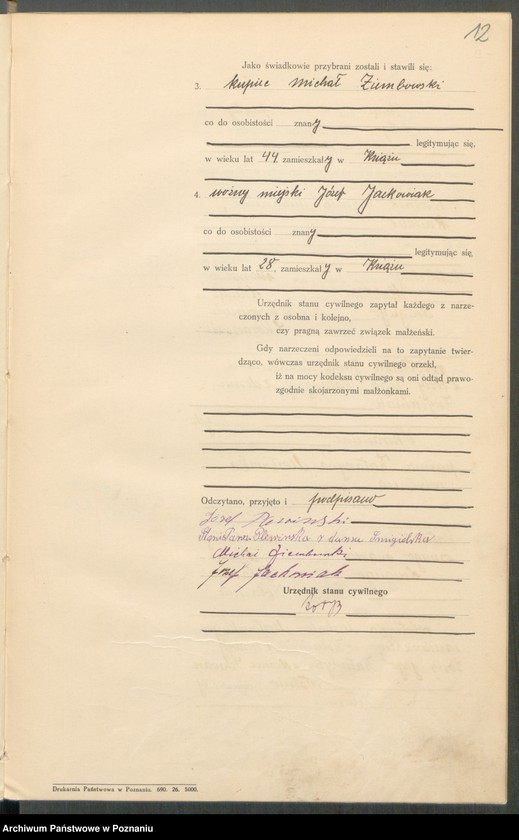 12
Jako świadkowie przybrani zostali i stawili się:
3. kupiec Michał Ziembowski
co do osobistości znany
legitymując się,
w wieku lat 44 zamieszkały w Książu
4. woźny miejski Józef Jackowiak
co do osobistości znany
legitymując się,
w wieku lat 28, zamieszkały w Książu
Urzędnik stanu cywilnego zapytał każdego z narze-
czonych z osobna i kolejno,
czy pragną zawrzeć związek małżeński.
Gdy narzeczeni odpowiedzieli na to zapytanie twier-
dząco, wówczas urzędnik stanu cywilnego orzekł,
iż na mocy kodeksu cywilnego są oni odtąd prawo-
zgodnie skojarzonymi małżonkami.
Odczytano, przyjęto i podpisano
Józef
Stanisława z domu Śmigielska
Michał Ziembowski
Józef Jackowiak
Urzędnik stanu cywilnego
Drukarnia Państwowa w Poznaniu. 690. 36. 5000.
Archiwum Państwowe w Poznaniu